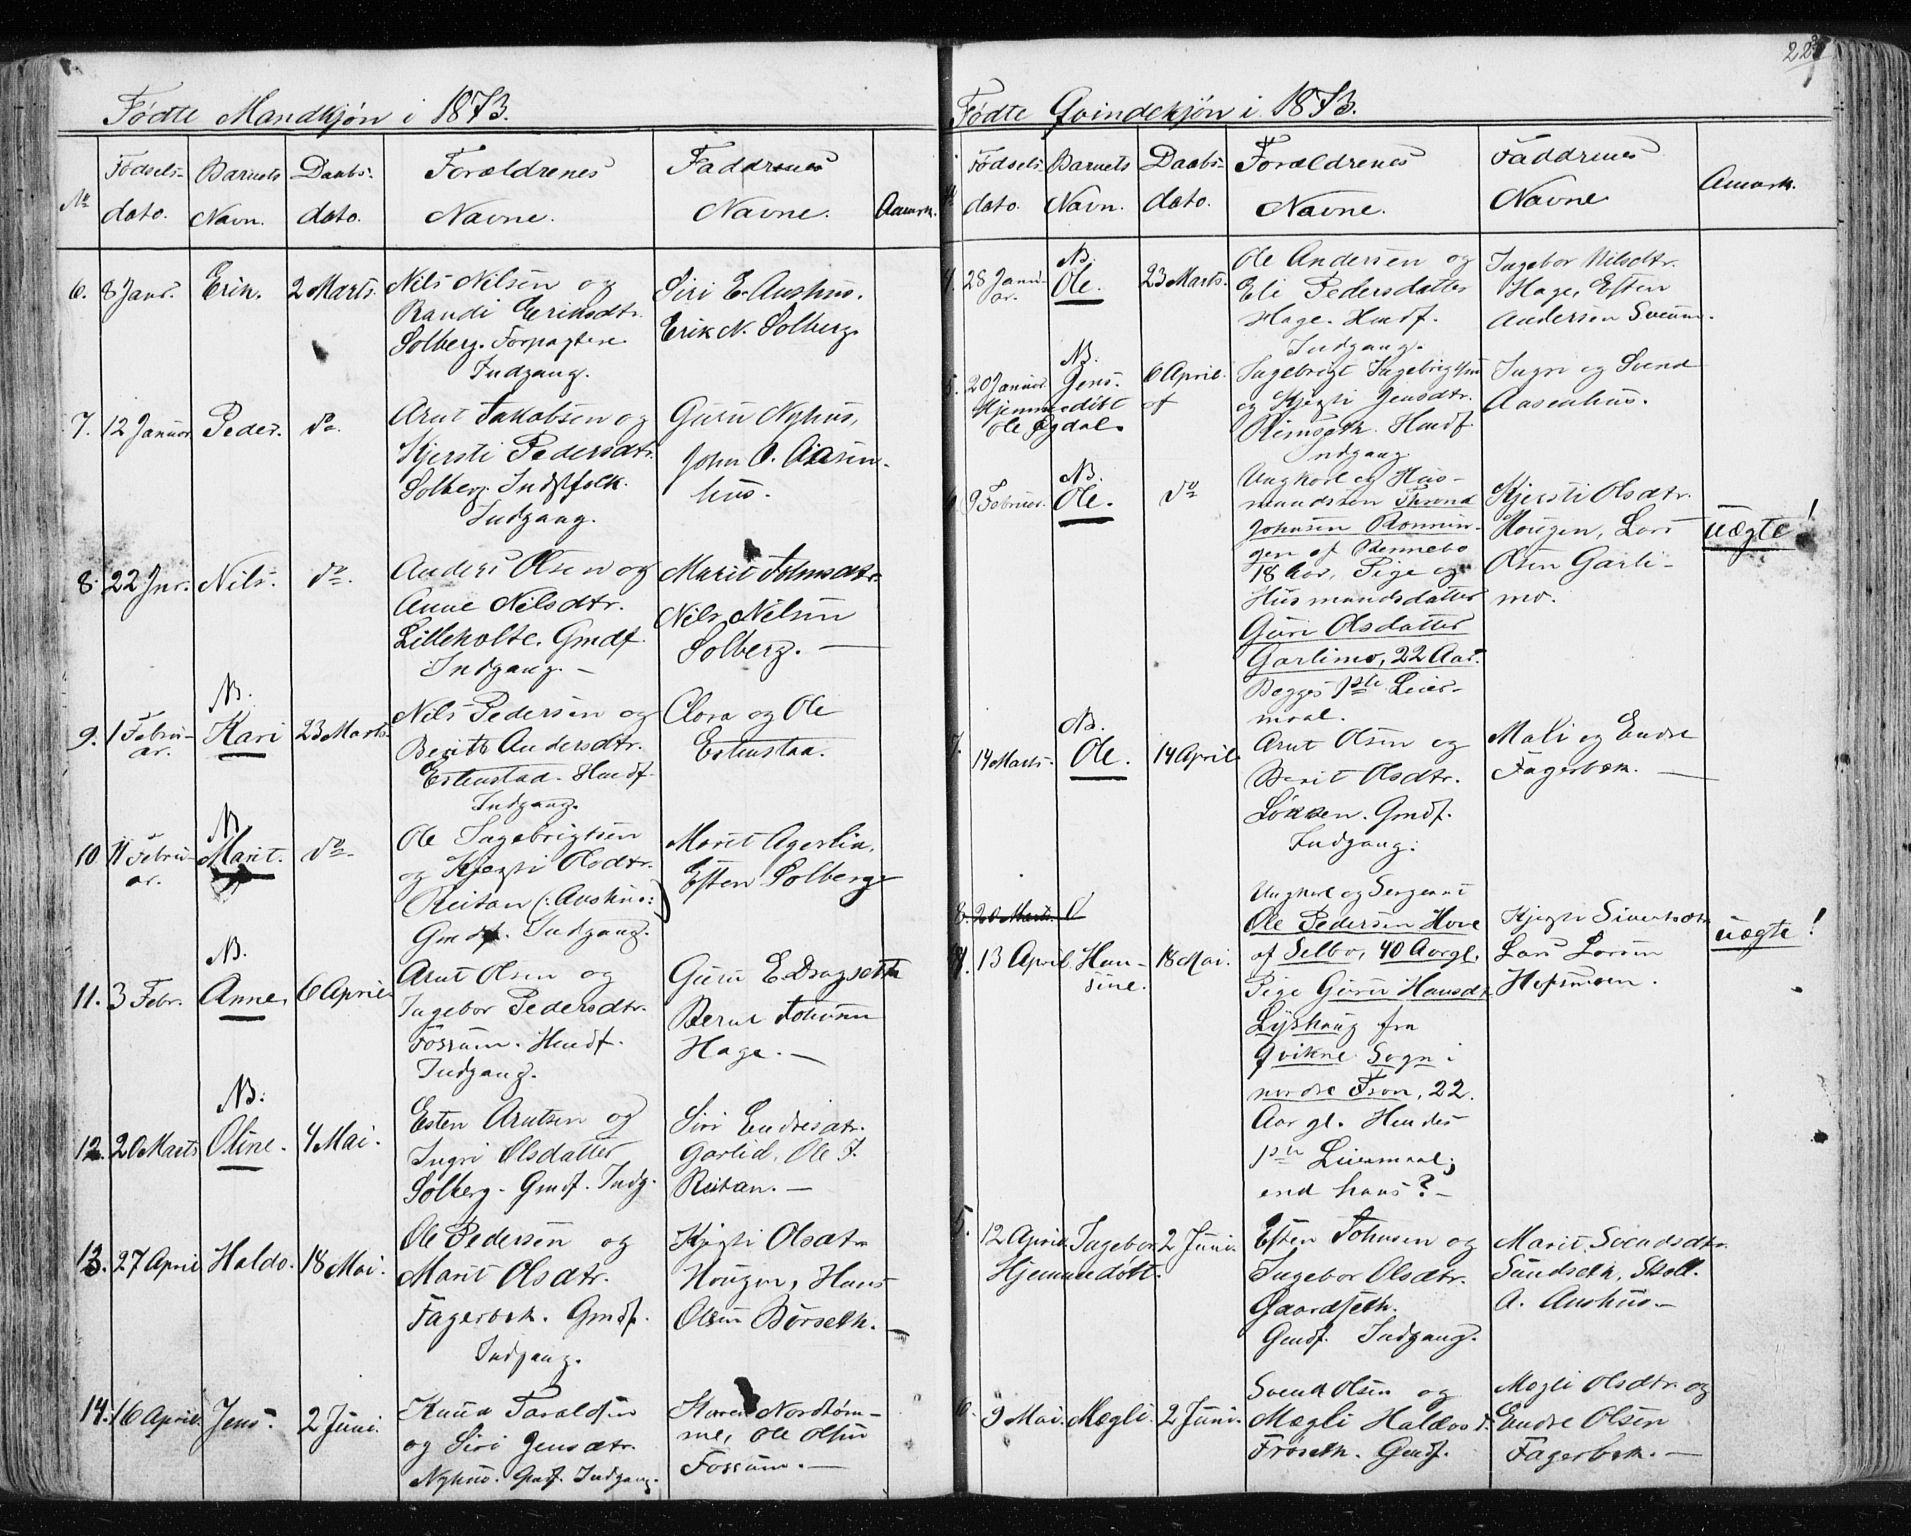 Fødte Mandkjøn i 1873.
No
Fødsels-
dato.
Barnets
Navn.
Daabs-
dato.
Forældrenes
Navne.
Faddrenes
Navne.
Anmrk.
6. 8 Janr. Erik. 2 Marts.
Nils Nilsen og
Randi Eriksdtr.
Solberg. Forpagtere
Indgang.
Siri E. Aushus.
Erik N. Solberg.
7. 12 Januar Peder. do.
Arnt Jakobsen og
Kjersti Pedersdtr.
Solberg. Indstfolk.
Indgang.
Guru Nyhus,
John O. Aasen-
hus.
8. 22 Jnr. Nils. do.
Anders Olsen og
Anne Nilsdtr.
Lilleholte. Gmdf.
Indgang. —
Marit Johnsdtr.
Nils Nilsen
Solberg. —
NB.
9. 1 Febru-
ar.
Kari 23 Marts.
Nils Pedersen og
Berit Andersdtr.
Estenstad. Hmdf.
Indgang.
Clora og Ole
Estenstaa.
NB.
10. 11 Febru-
ar.
Marit. do.
Ole Ingebrigtsen
og Kjersti Olsdtr.
Reitan (: Aushus:)
Gmdf. Indgang.
Marit Agerlia,
Esten Solberg
NB.
11. 3 Febr. Anne, 6 April
Arnt Olsen og
Ingebor Pedersdtr.
Fossum. Hmdf.
Indgang.
Guru E. Dragseth
Bernt Johnsen
Hage. —
NB.
12. 20 Marts Oline. 4 Mai.
Esten Arntsen og
Ingri Olsdatter
Solberg. Gmdf. Indg.
Siri Endresdtr.
Garlid, Ole J.
Reitan. —
13. 27 April Haldo. 18 Mai.
Ole Pedersen og
Marit Olsdtr.
Fagerbek. Gmdf.
Indgang.
Kjersti Olsdtr
Hougen, Hans
Olsen Børseth. —
14. 16 April. Jens. 2 Juni.
Knud Taraldsen
og Siri Jensdtr.
Nyhus. Gmdf. Indgang.
Karen Nordtøm-
me, Ole Olsen
Fossum. —
Fødte Qvindekjøn i 1873.
Fødsels-
dato.
Barnets
Navn.
Daabs-
dato.
Forældrenes
Navne.
Faddrenes
Navne
Anmrk.
NB.
4. 28 Janu-
ar.
Ole. 23 Marts.
Ole Andersen og
Eli Pedersdatter
Hage. Hmdf.
Indgang.
Ingebor Nilsdtr.
Hage, Esten
Andersen Sveum.
NB.
5. 20 Januar Jens. 6 April.
Hjemmedøbt af
Ole Øgdal.
Ingebrigt Ingebrigtsen
og Kjersti Jensdtr.
Rimseth. Hmdf
Indgang
Ingri og Svend
Aasenhus.
NB.
9 Februar. Ole. do
Ungkarl og Hus-
mandssøn Thrond
Johnsen Rønnin-
gen af Rennebo
18 Aar, Pige og
Husmandsdatter
Guri Olsdatter
Garlimo, 22 Aar.
Begges 1ste Leier-
maal.
Kjersti Olsdtr.
Hougen, Lars
Olsen Garli-
mo.
uægte!
NB.
7. 14 Marts. Ole. 14 April
Arnt Olsen og
Berit Olsdtr.
Løkken. Gmdf.
Indgang.
Mali og Endre
Fagerbek. —
8. 20 Marts. O
4. 13 April Han-
sine. 18 Mai.
Ungkarl og Sergeant
Ole Pedersen Hove
af Selbo, 40 Aar gl.
Pige Guru Hansdt.
Lyshaug fra
Qvikne Sogn i
nordre Fron, 22
Aar gl. Hendes
1ste Leiermaal;
end hans? —
Kjersti Sivertsdtr
Lars Larsen
Hafsmoen.
uægte!
5. 12 April Ingebor 2 Juni.
Hjemmedøbt.
Esten Johnsen og
Ingebor Olsdtr.
Gaardseth.
Gmdf. Indgang.
Marit Svendsdtr.
Sundseth,
A. Aushus. —
6. 9 Mai. Mogli. 2 Juni.
Svend Olsen og
Mogli Haldosdt.
Frøseth. Gmdf.
Mogli Olsdtr. og
Endre Olsen
Fagerbek. —